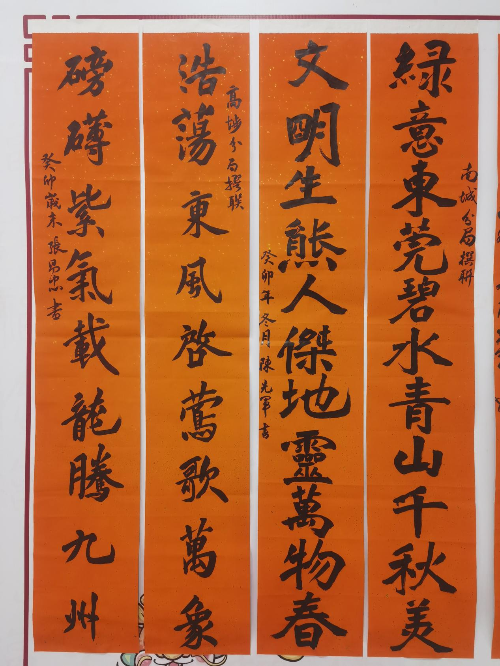 綠意東莞碧水青山千秋美
南城分局撰联
文明生態人傑地靈萬物春
癸卯年冬月陳先軍書
浩蕩東風啓鶯歌萬象
高埗分局撰联
磅礴紫氣載龍騰九州
癸卯歲末張昂忠書